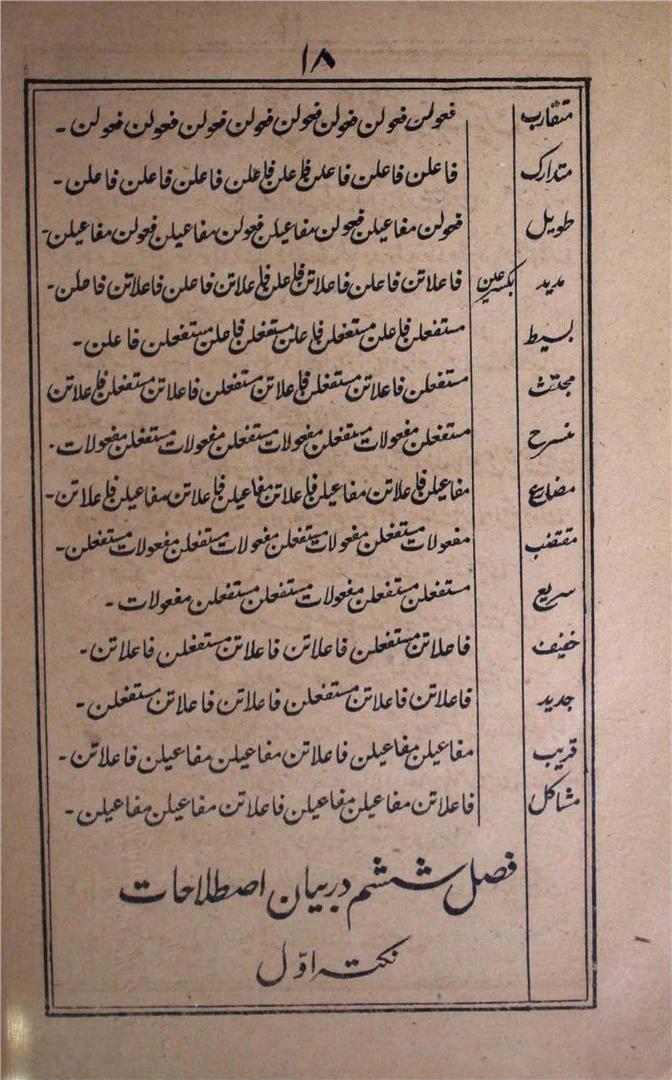 ۱۸
متقارب فعولن فعولن فعولن فعولن فعولن فعولن فعولن فعولن ۔
متدارک فاعلن فاعلن فاعلن فاعلن فاعلن فاعلن فاعلن فاعلن ۔
طویل فعولن مفاعیلن فعولن مفاعیلن فعولن مفاعیلن فعولن مفاعیلن ۔
مدید بکسر عین فاعلاتن فاعلن فاعلاتن فاعلن فاعلاتن فاعلن فاعلاتن فاعلن ۔
بسیط مستفعلن فاعلن مستفعلن فاعلن مستفعلن فاعلن مستفعلن فاعلن ۔
مجتث مستفعلن فاعلاتن مستفعلن فاعلاتن مستفعلن فاعلاتن مستفعلن فاعلاتن
منسرح مستفعلن مفعولات مستفعلن مفعولات مستفعلن مفعولات مستفعلن مفعولات ۔
مضارع مفاعیلن فاعلاتن مفاعیلن فاعلاتن مفاعیلن فاعلاتن مفاعیلن فاعلاتن ۔
مقتضب مفعولات مستفعلن مفعولات مستفعلن مفعولات مستفعلن مفعولات مستفعلن ۔
سریع مستفعلن مستفعلن مفعولات مستفعلن مستفعلن مفعولات ۔
خفیف فاعلاتن مستفعلن فاعلاتن فاعلاتن مستفعلن فاعلاتن ۔
جدید فاعلاتن فاعلاتن مستفعلن فاعلاتن فاعلاتن مستفعلن ۔
قریب مفاعیلن مفاعیلن فاعلاتن مفاعیلن مفاعیلن فاعلاتن ۔
مشاکل فاعلاتن مفاعیلن مفاعیلن فاعلاتن مفاعیلن مفاعیلن ۔
فصل ششم در بیان اصطلاحات
نکتہ اوّل